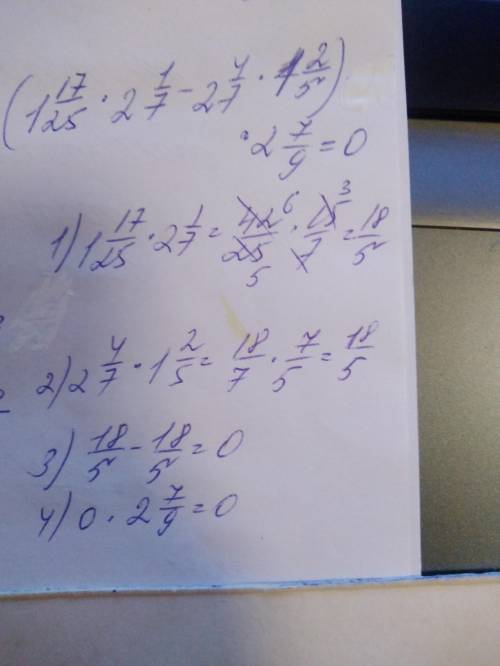 (1 17/25 · 2 1/7 - 2 4/7 · 1 2/5) ·
· 2 7/9 = 0
1) 1 17/25 · 2 1/7 = 42/25 · 15/7 = 18/5
6 3
5
2) 2 4/7 · 1 2/5 = 18/7 · 7/5 = 18/5
3) 18/5 - 18/5 = 0
4) 0 · 2 7/9 = 0